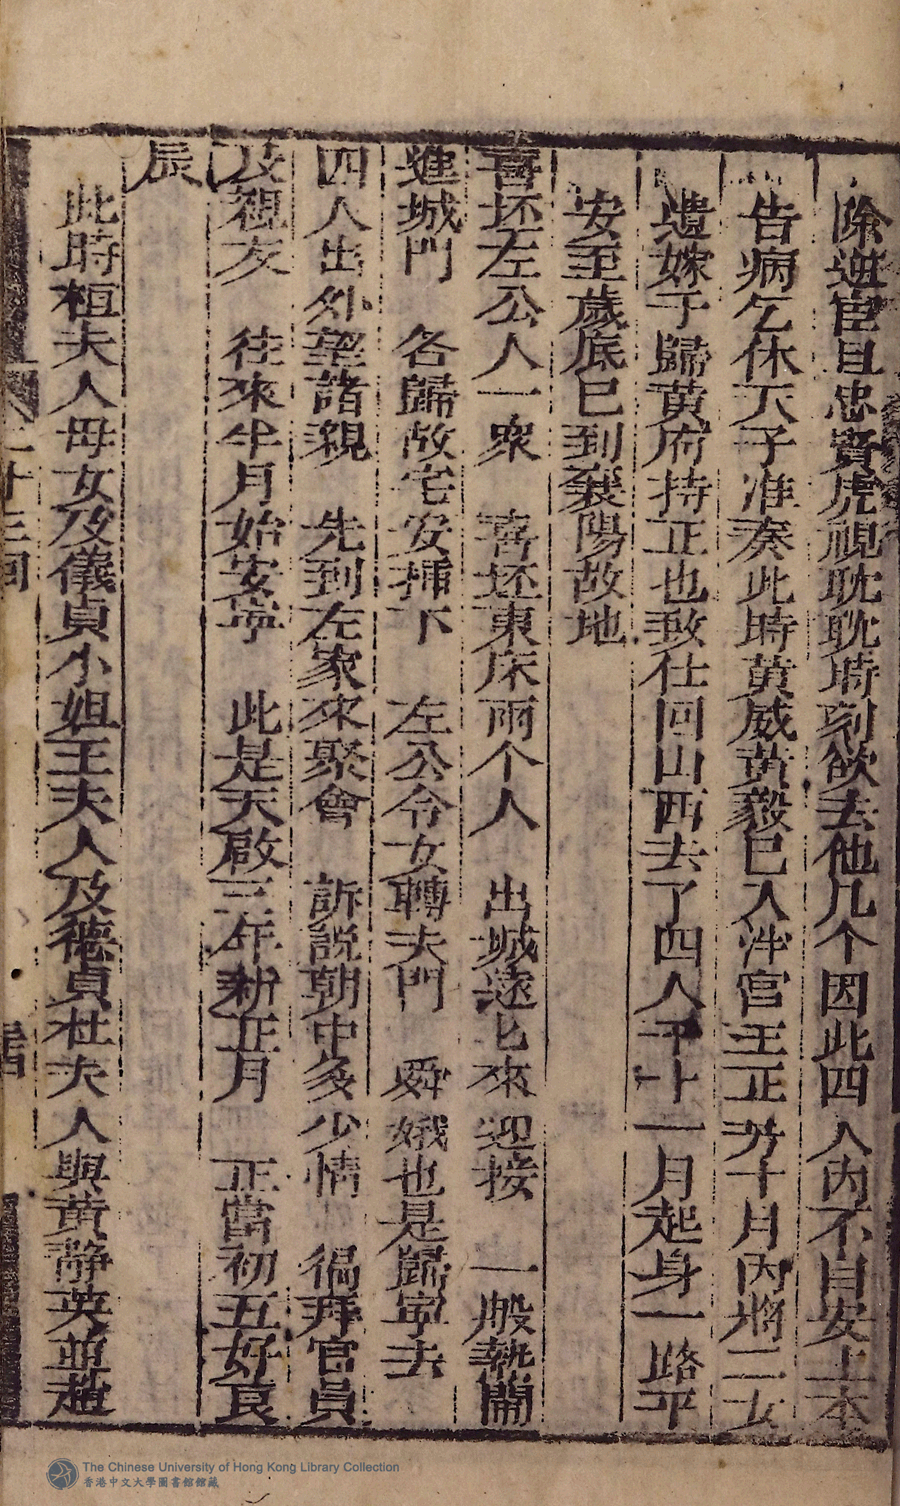 除逆宦且忠賢虎視耽耽時刻欲去他几个因此四人內不自安上本
告病乞休天子准奏此時黄威黄毅已入泮宫王正芳十月內將二女
遺嫁于歸黄府持正也致仕回山西去了四人于十一月起身一路平
安至歲底巳到襄陽故地
喜坯左公人一衆 喜坯東床兩个人 出城遠匕來迎接 一般熱鬧
進城門 各歸故宅安揷下 左公令女轉夫門 舜娥也是歸寧去
四人出外望諸親 先到左家來聚會 訴説朝中多少情 徧拜官員
及親友 往來半月始安寧 此是天啟三年新正月 正當初五好良
辰
此時桓夫人母女及儀貞小姐王夫人及德貞杜夫人與黄靜英並趙
二十三回
The Chinese University of Hong Kong Library Collection
香港中文大學圖書館館藏